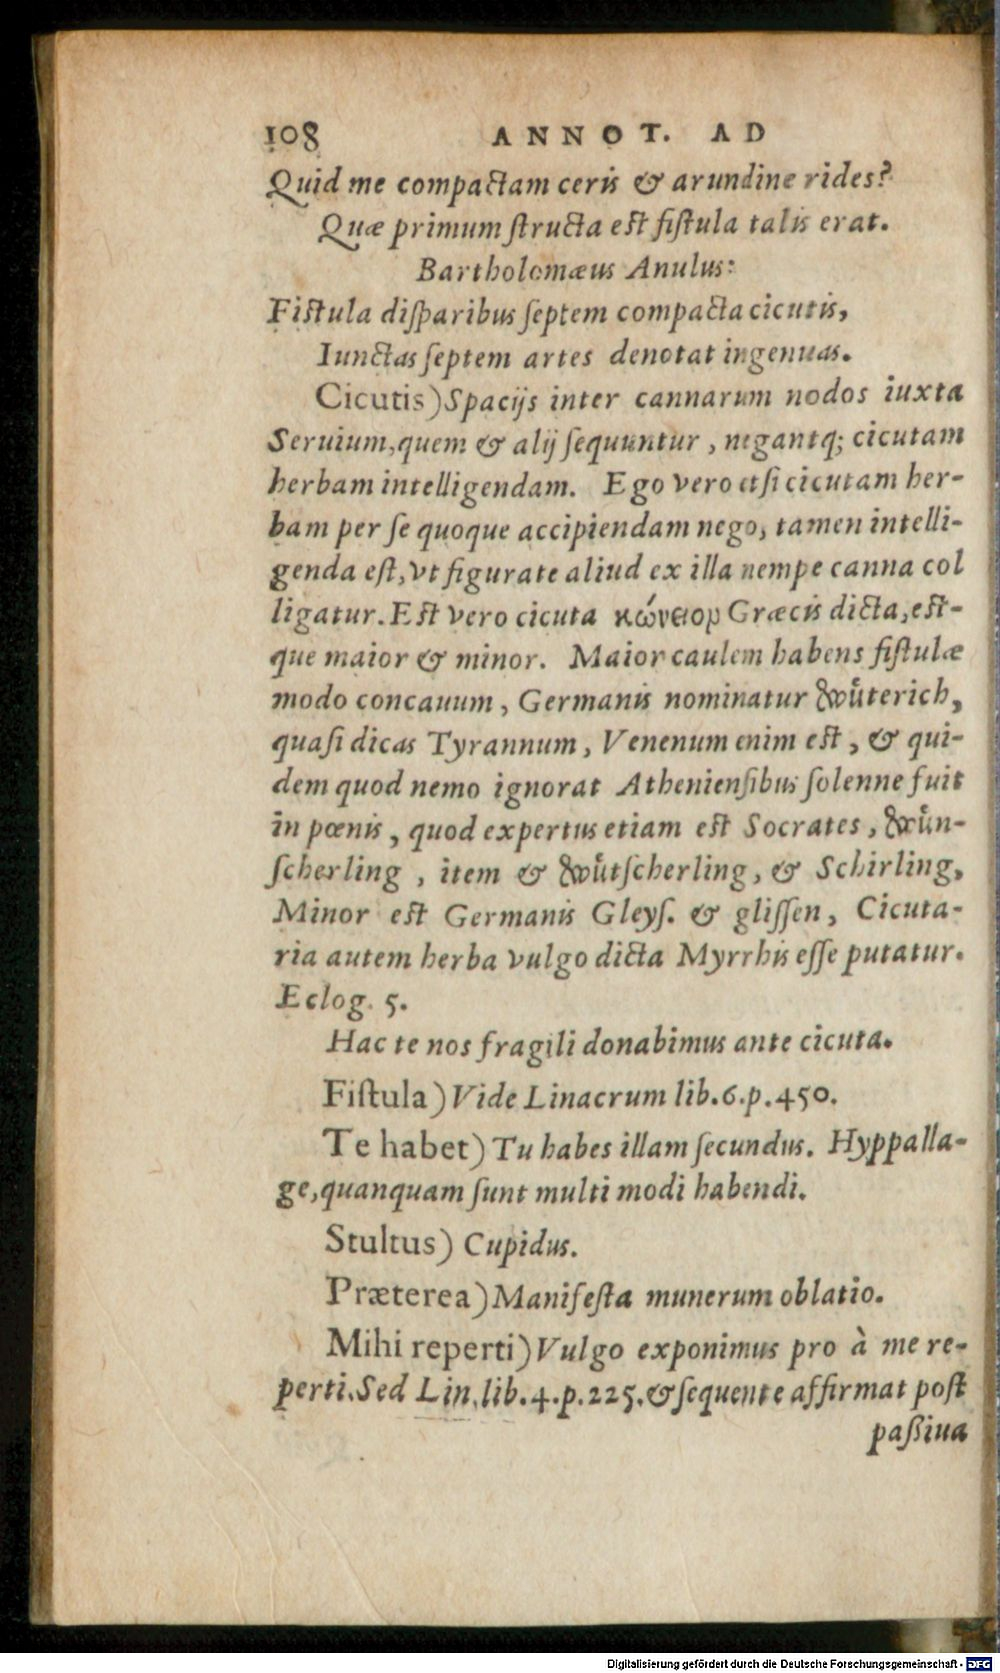 108 ANNOT. AD
Quid me compactam ceris & arundine rides?
Quæ primum ſtructa eſt fiſtula talis erat.
Bartholomæus Anulus:
Fiſtula diſparibus ſeptem compacta cicutis,
Iunctas ſeptem artes denotat ingenuas.
Cicutis) Spacijs inter cannarum nodos iuxta
Seruium, quem & alij ſequuntur, negantq; cicutam
herbam intelligendam. Ego vero etſi cicutam her-
bam per ſe quoque accipiendam nego, tamen intelli-
genda eſt, vt figurate aliud ex illa nempe canna col
ligatur. Eſt vero cicuta κώνειορ Græcis dicta, eſt-
que maior & minor. Maior caulem habens fiſtulæ
modo concauum, Germanis nominatur Wuͤterich,
quaſi dicas Tyrannum, Venenum enim eſt, & qui-
dem quod nemo ignorat Athenienſibus ſolenne fuit
in pœnis, quod expertus etiam eſt Socrates, Wuͤn-
ſcherling, item & Wuͤtſcherling, & Schirling,
Minor eſt Germanis Gleyſ. & gliſſen, Cicuta-
ria autem herba vulgo dicta Myrrhis eſſe putatur.
Eclog. 5.
Hac te nos fragili donabimus ante cicuta.
Fiſtula) Vide Linacrum lib. 6. p. 450.
Te habet) Tu habes illam ſecundus. Hyppalla-
ge, quanquam ſunt multi modi habendi.
Stultus) Cupidus.
Præterea) Manifeſta munerum oblatio.
Mihi reperti) Vulgo exponimus pro à me re-
perti. Sed Lin. lib. 4. p. 225. & ſequente affirmat poſt
paßiua
Digitalisierung gefördert durch die Deutsche Forschungsgemeinschaft - DFG